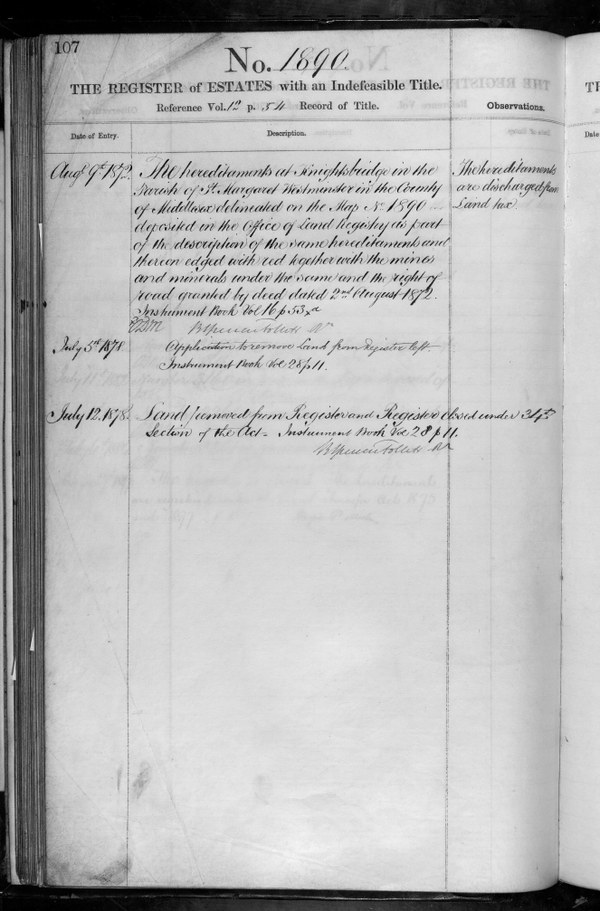 107
No. 1890.
THE REGISTER of ESTATES with an Indefeasible Title.
Reference Vol. 12 p. 54 Record of Title.
Observations.
Date of Entry.
Description.
Augt 9th 1872.
The hereditaments at Knightsbridge in the
Parish of St. Margaret Westminster in the County
of Middlesex delineated on the Map No. 1890
deposited in the Office of Land Registry as part
of the description of the same hereditaments and
thereon edged with red together with the mines
and minerals under the same and the right of
road granted by deed dated 2nd August 1872.
Instrument Book Vol 16 p 53xa
The hereditaments
are discharged from
Land tax
B Spencer Follett Rr
July 5th 1878
Application to remove Land from Register left.
Instrument Book Vol 28 p 11.
July 12. 1878.
Land removed from Register and Register closed under 34th
Section of the Act. Instrument Book Vol 28 p 11.
B Spencer Follett Rr